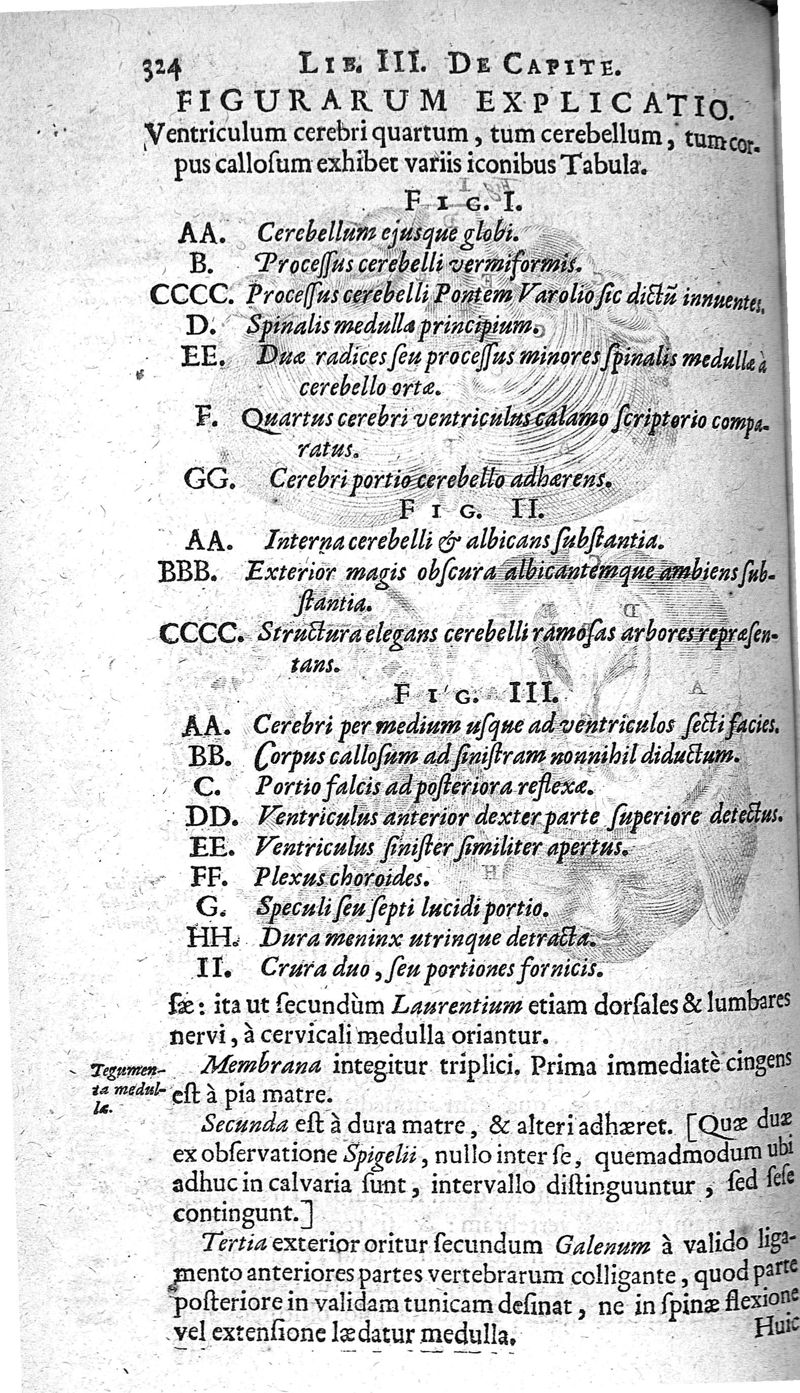 324 LIB. III. DE CAPITE.
FIGURARUM EXPLICATIO.
Ventriculum cerebri quartum, tum cerebellum, tum cor-
pus calloſum exhibet variis iconibus Tabula.
FIG. I.
AA. Cerebellum ejusque globi.
B. Proceſſus cerebelli vermiformis.
CCCC. Proceſſus cerebelli Pontem Varolio ſic dictū innuentes.
D. Spinalis medullæ principium.
EE. Duæ radices ſeu proceſſus minores ſpinalis medullæ à
cerebello ortæ.
F. Quartus cerebri ventriculus calamo ſcriptorio compa-
ratus.
GG. Cerebri portio cerebello adhærens.
FIG. II.
AA. Interna cerebelli & albicans ſubſtantia.
BBB. Exterior magis obſcura albicantemque ambiens ſub-
ſtantia.
CCCC. Structura elegans cerebelli ramoſas arbores repræſen-
tans.
FIG. III.
AA. Cerebri per medium uſque ad ventriculos ſecti facies.
BB. Corpus calloſum ad ſiniſtram nonnihil diductum.
C. Portio falcis ad poſteriora reflexæ.
DD. Ventriculus anterior dexter parte ſuperiore detectus.
EE. Ventriculus ſiniſter ſimiliter apertus.
FF. Plexus choroides.
G. Speculi ſeu ſepti lucidi portio.
HH. Dura meninx utrinque detracta.
II. Crura duo, ſeu portiones fornicis.
ſæ: ita ut ſecundùm Laurentium etiam dorſales & lumbares
nervi, à cervicali medulla oriantur.
Tegumen-
ta medul-
læ.
Membrana integitur triplici. Prima immediatè cingens
eſt à pia matre.
Secunda eſt à dura matre, & alteri adhæret. [Quæ duæ
ex obſervatione Spigelii, nullo inter ſe, quemadmodum ubi
adhuc in calvaria ſunt, intervallo diſtinguuntur, ſed ſeſe
contingunt.]
Tertia exterior oritur ſecundum Galenum à valido liga-
mento anteriores partes vertebrarum colligante, quod parte
poſteriore in validam tunicam deſinat, ne in ſpinæ flexione
vel extenſione lædatur medulla.
Huic